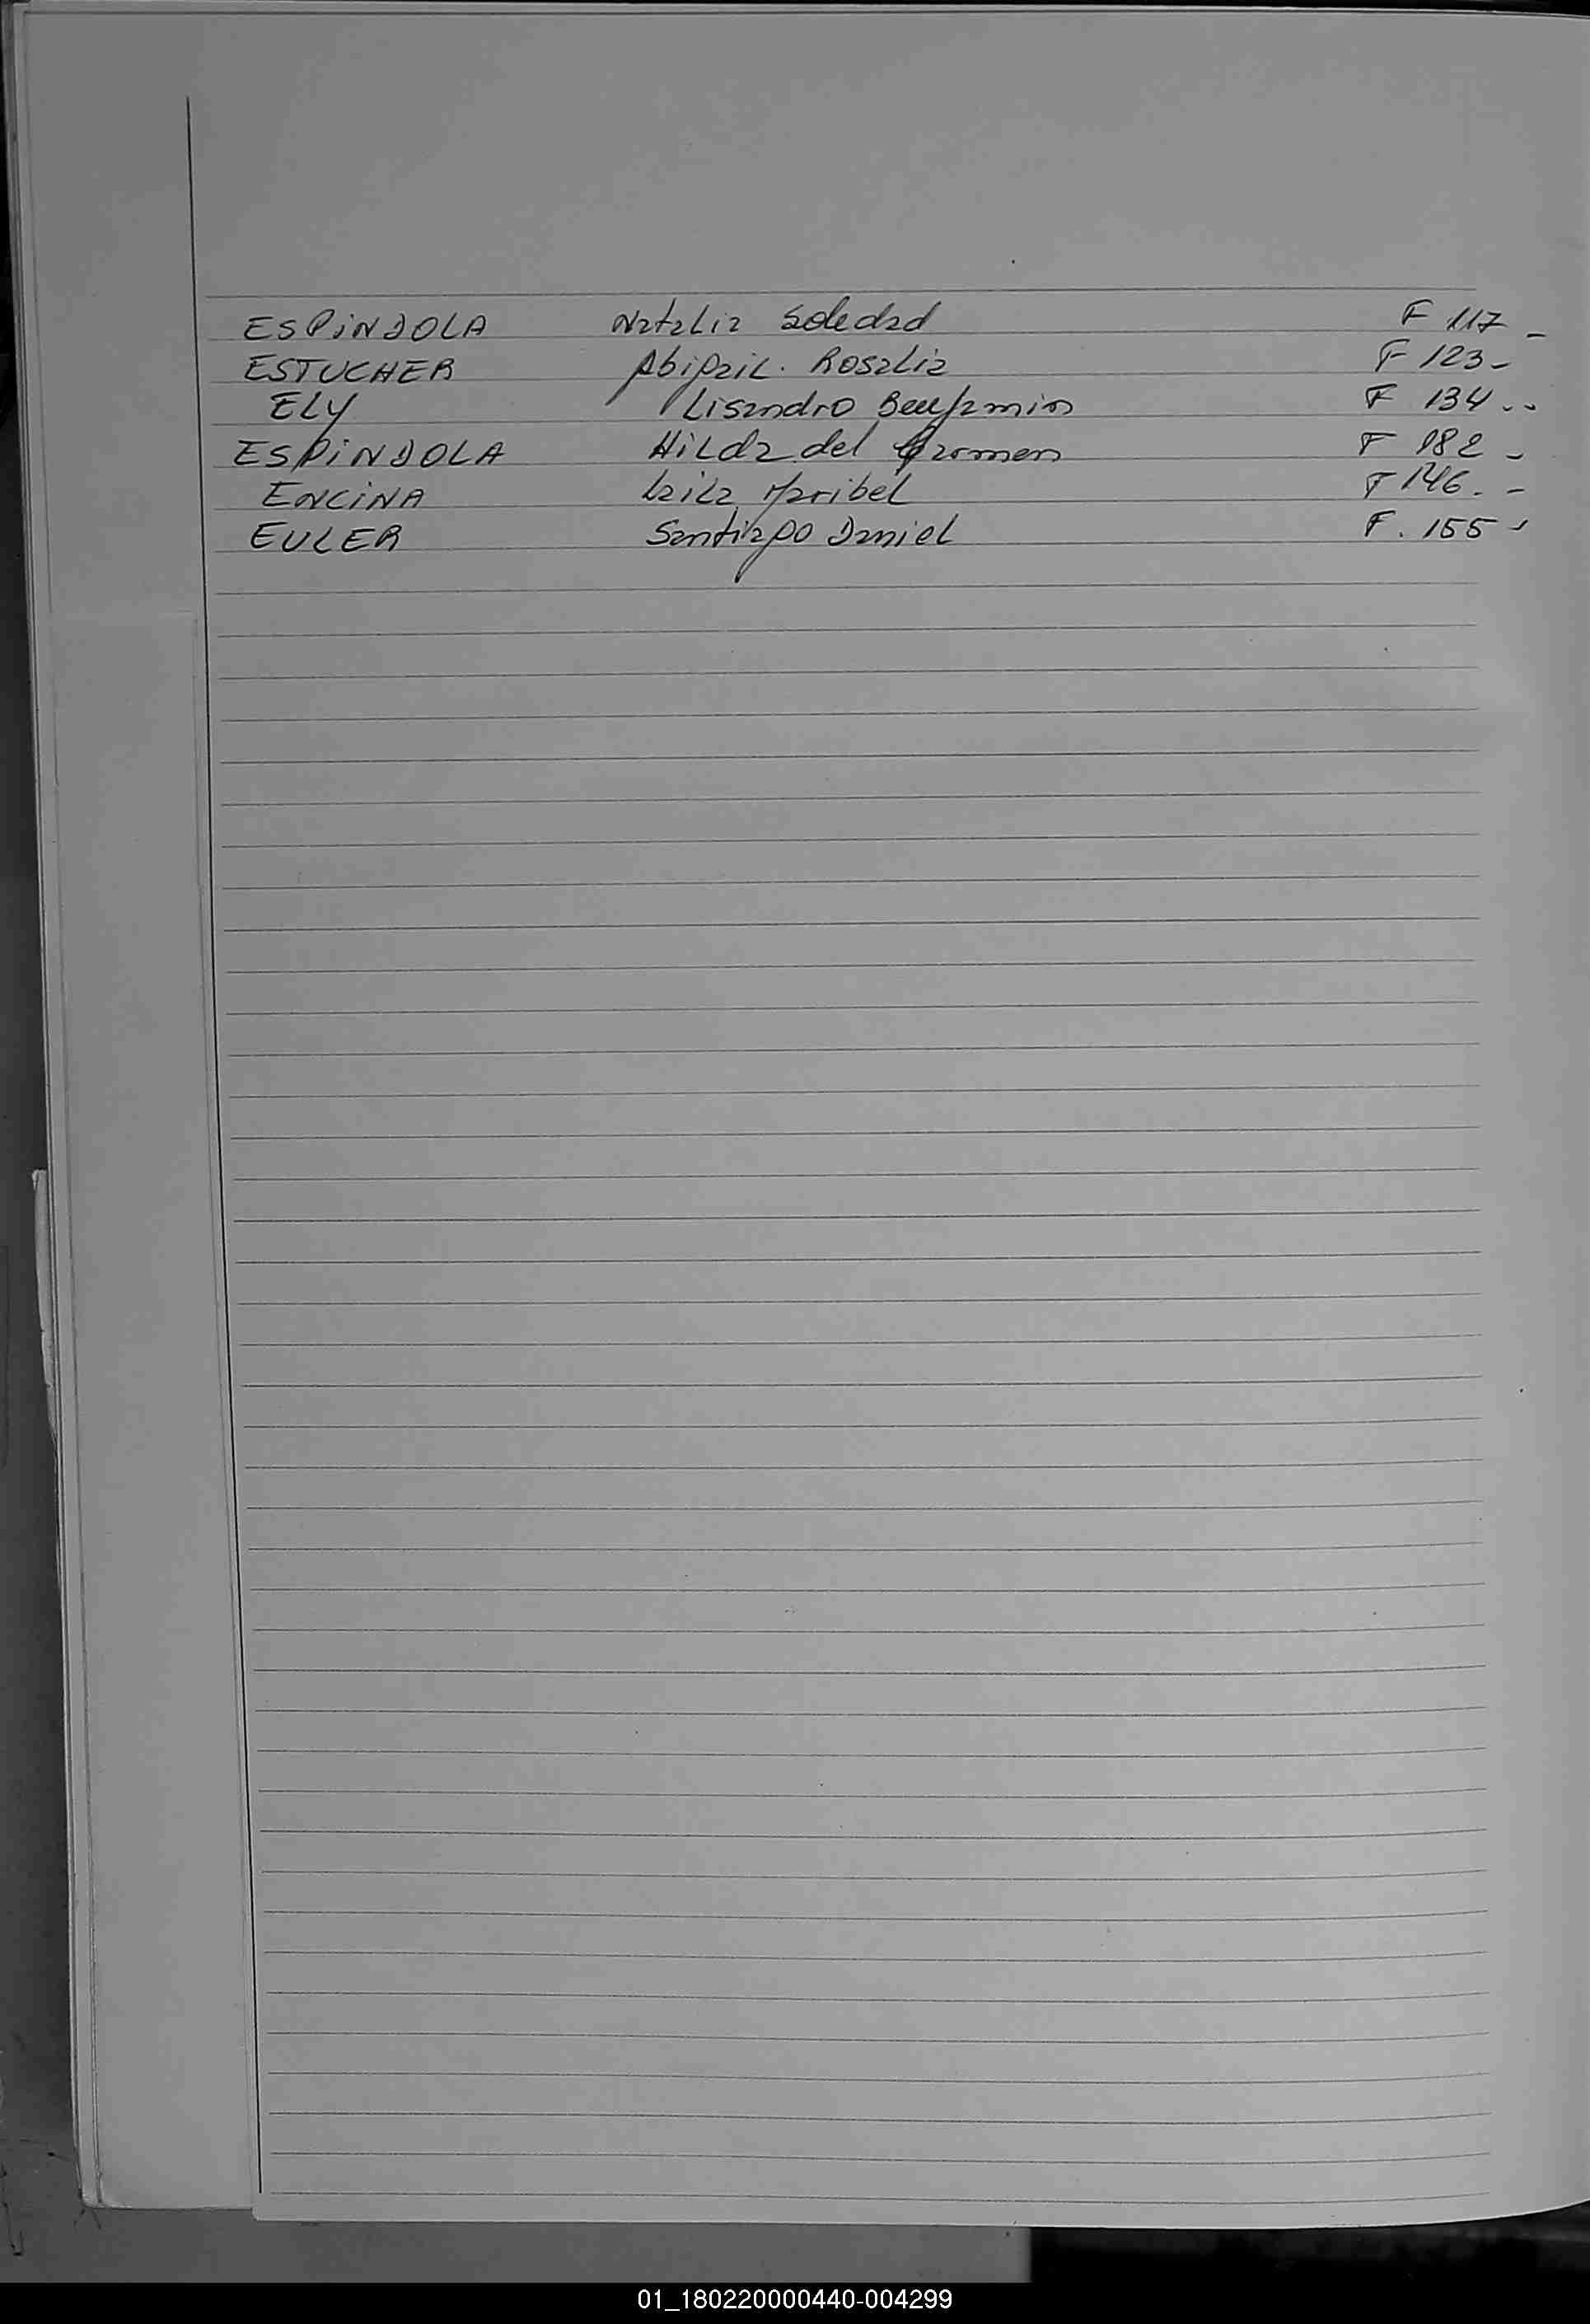 ESPINDOLA Natalia Soledad F 117 -
ESTUCHER Abigail. Rosalia F 123 -
ELY Lisandro Benjamin F 134 . .
ESPINDOLA Hilda del Carmen F 182 -
ENCINA Maribel F 146. -
EULER Santiago Daniel F. 155 -
01_180220000440-004299